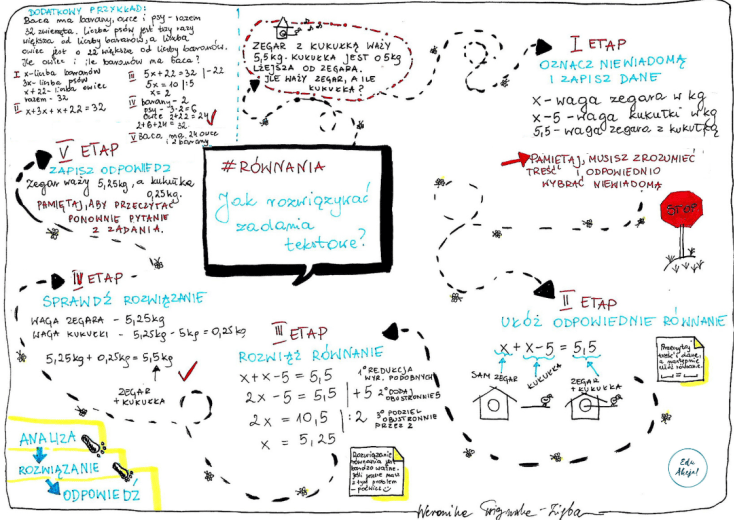 DODATKOWY PRZYKŁAD:
Baca ma barany, owce i psy - razem
32 zwierzęta. Liczba psów jest trzy razy
większa od liczby baranów, a liczba
owiec jest o 22 większa od liczby baranów.
Ile owiec i ile baranów ma baca?
I x - liczba baranów
3x - liczba psów
x + 22 - liczba owiec
razem - 32
II x+3x+x+22=32
III 5x+22=32 |-22
5x = 10 |:5
x = 2
IV barany - 2
psy - 3·2=6
owce 2+22=24
2+6+24=32
V Baca ma 24 owce
i 2 barany
ZEGAR Z KUKUŁKĄ WAŻY
5,5kg. KUKUŁKA JEST O 5kg
LŻEJSZA OD ZEGARA.
ILE WAŻY ZEGAR, A ILE
KUKUŁKA?
I ETAP
OZNACZ NIEWIADOMĄ
I ZAPISZ DANE
x - waga zegara w kg
x-5 - waga kukułki w kg
5,5 - waga zegara z kukułką
PAMIĘTAJ, MUSISZ ZROZUMIEĆ
TREŚĆ I ODPOWIEDNIO
WYBRAĆ NIEWIADOMĄ
STOP
#RÓWNANIA
Jak rozwiązywać
zadania
tekstowe?
V ETAP
ZAPISZ ODPOWIEDŹ
Zegar waży 5,25kg, a kukułka
0,25kg.
PAMIĘTAJ, ABY PRZECZYTAĆ
PONOWNIE PYTANIE
Z ZADANIA.
IV ETAP
SPRAWDŹ ROZWIĄZANIE
WAGA ZEGARA - 5,25kg
WAGA KUKUŁKI - 5,25kg - 5kg = 0,25kg
5,25kg + 0,25kg = 5,5kg
ZEGAR
+ KUKUŁKA
III ETAP
ROZWIĄŻ RÓWNANIE
x+x-5 = 5,5
2x - 5 = 5,5 | +5
2x = 10,5 | :2
x = 5,25
1° REDUKCJA
WYR. PODOBNYCH
2° DODAJ
OBUSTRONNIE 5
3° PODZIEL
OBUSTRONNIE
PRZEZ 2
Rozwiązanie
równania jest
bardzo ważne.
Jeśli jeszcze masz
z tym problem
- poćwicz
II ETAP
UŁÓŻ ODPOWIEDNIE RÓWNANIE
x + x-5 = 5,5
SAM ZEGAR
KUKUŁKA
ZEGAR
+ KUKUŁKA
Przeczytaj
treść i dane,
a następnie
ułóż równanie.
ANALIZA
ROZWIĄZANIE
ODPOWIEDŹ
Edu
Weronika